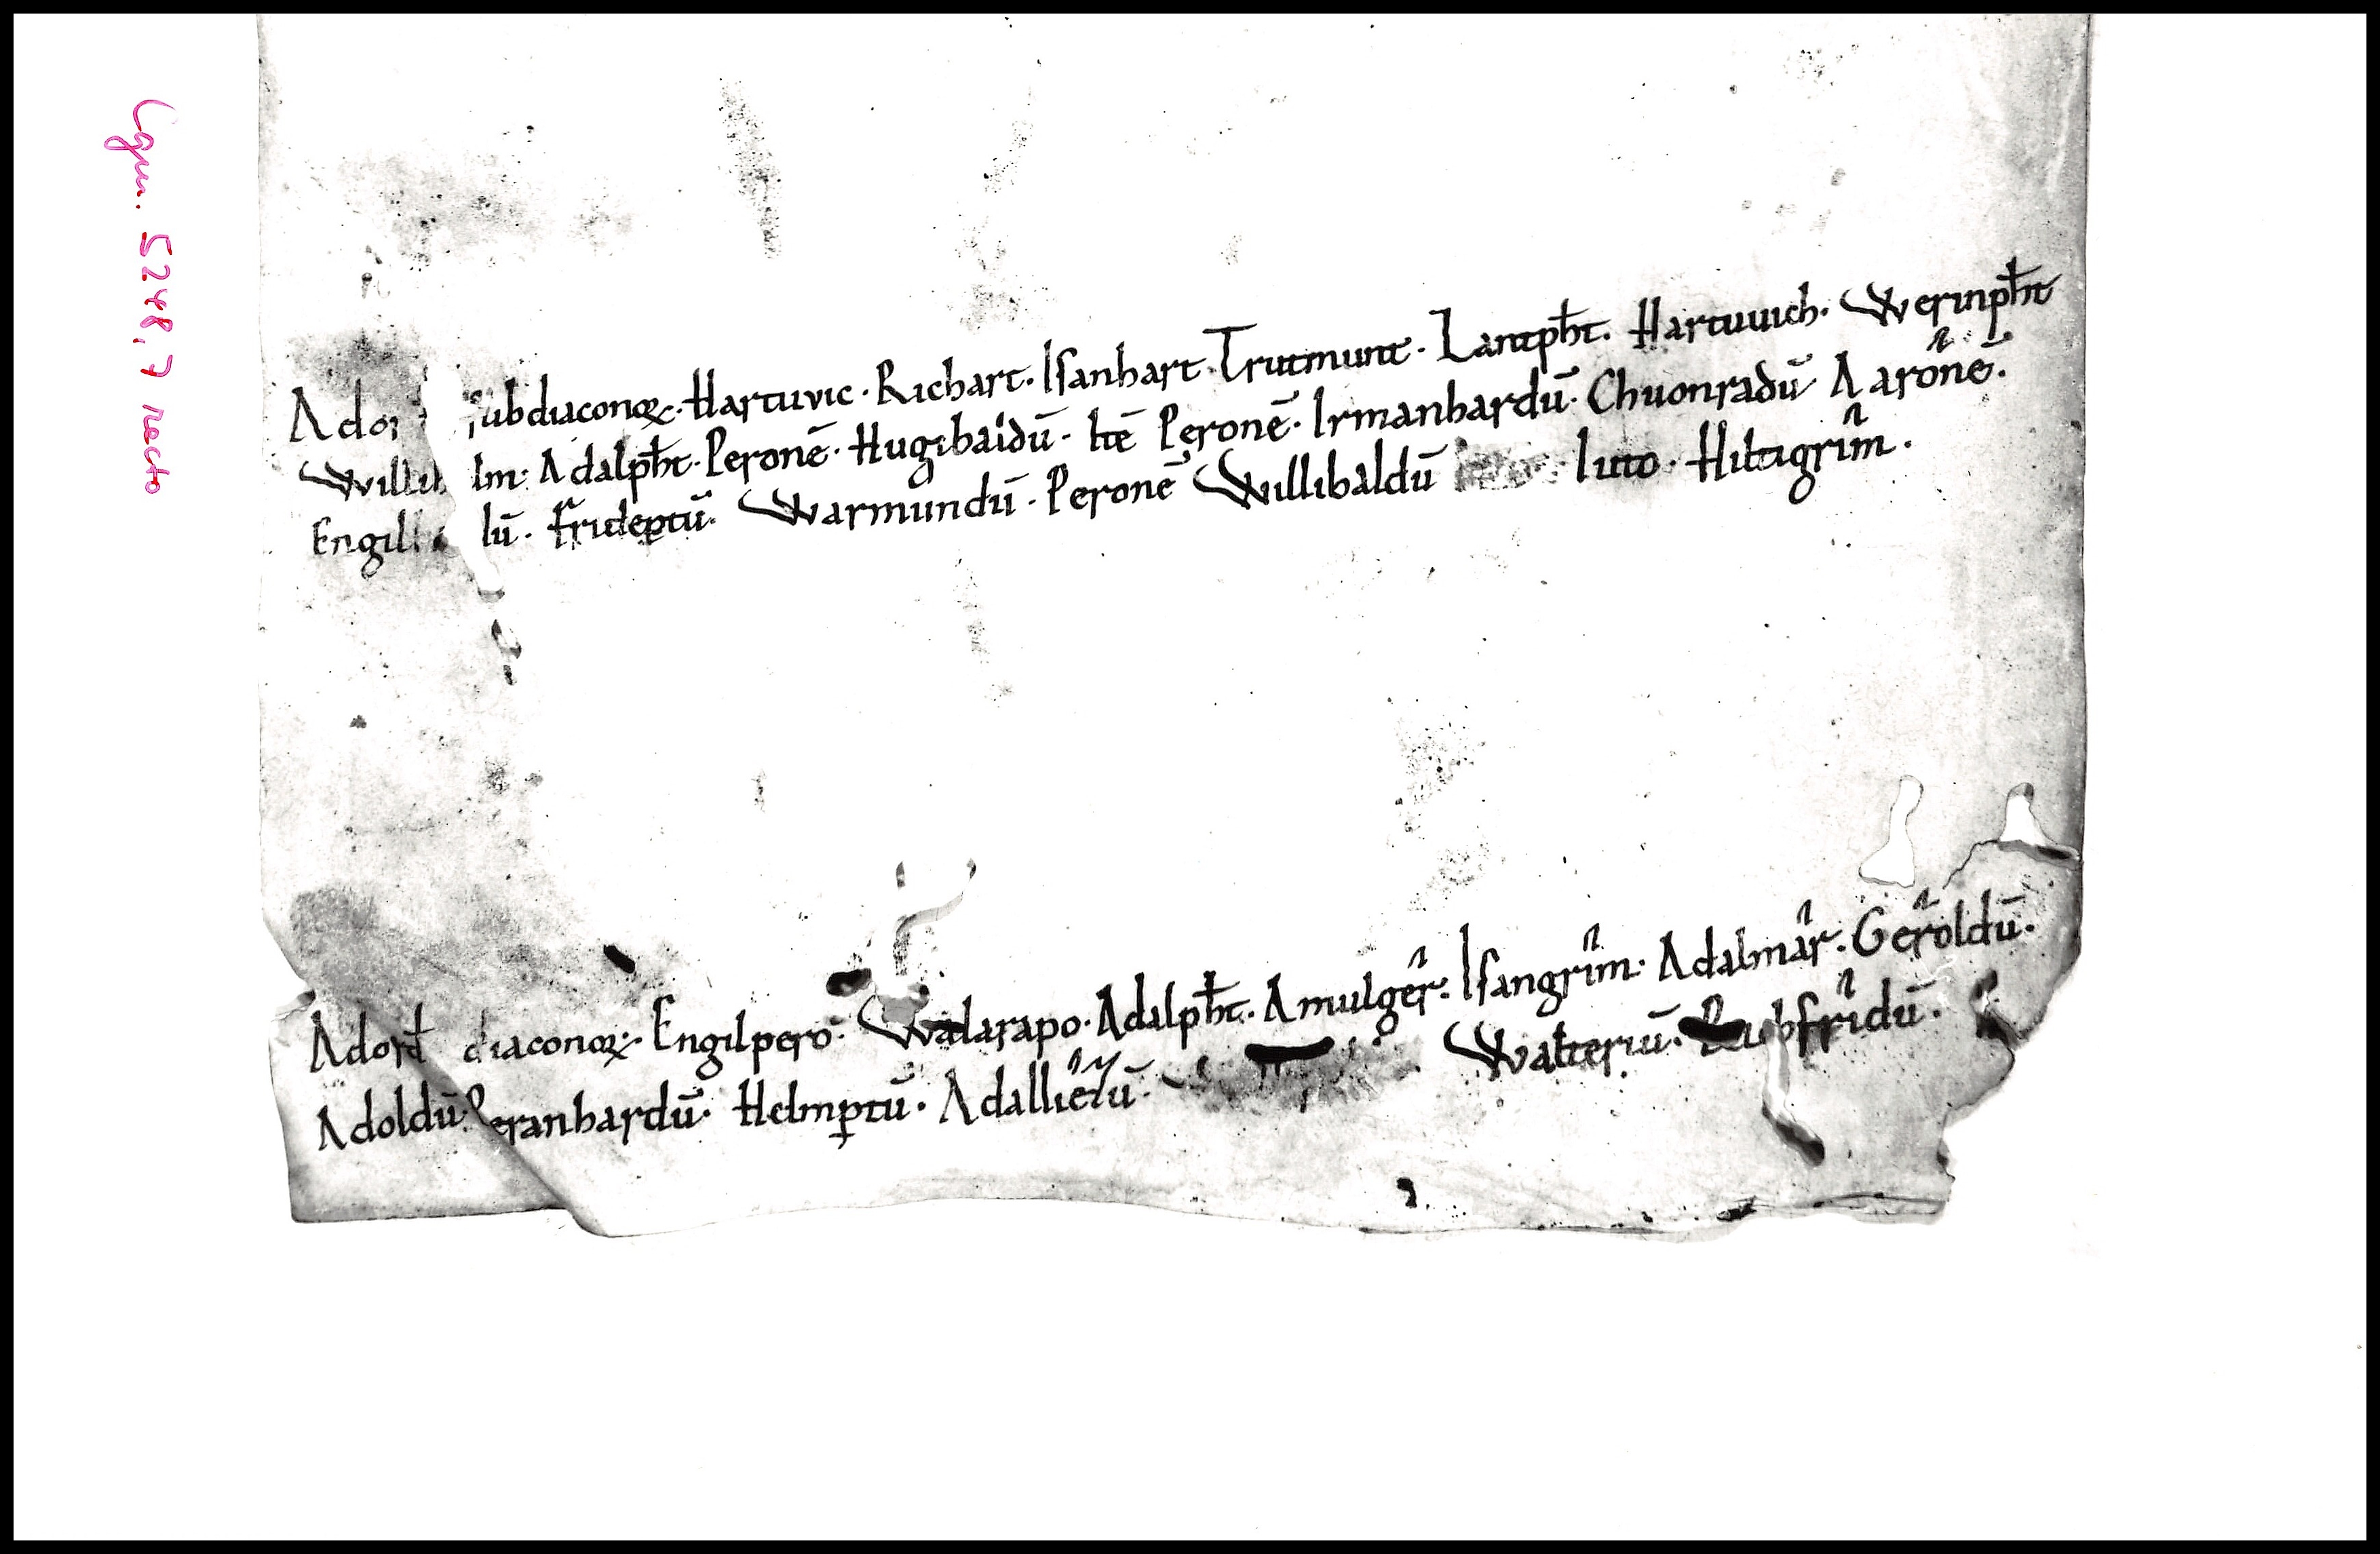 Cgm. 5248,7 recto
Ador subdiaconoꝝ. Hartuvic. Richart. Isanhart. Trutmunt. Lantpħt. Hartuuich. Werinpħt
Willih lm. Adalpħt. Peronē. Hugibaldū. Itē Peronē. Irmanhardū. Chuonradū Aaronē.
Engil lū. Frideptū. Warmundū. Peronē Willibaldū luto. Hiltigrim.
Adord diaconoꝝ. Engilpero. Walarapo. Adalpħt. Amulger. Isangrim. Adalmar. Geroldū.
Adoldū. Peranhardū. Helmptū. Adalliezū. Walteriū. fridū.